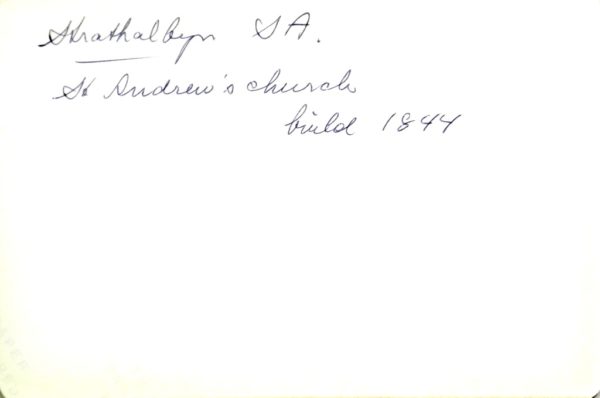 Strathalbyn SA.
St Andrew's church
build 1844